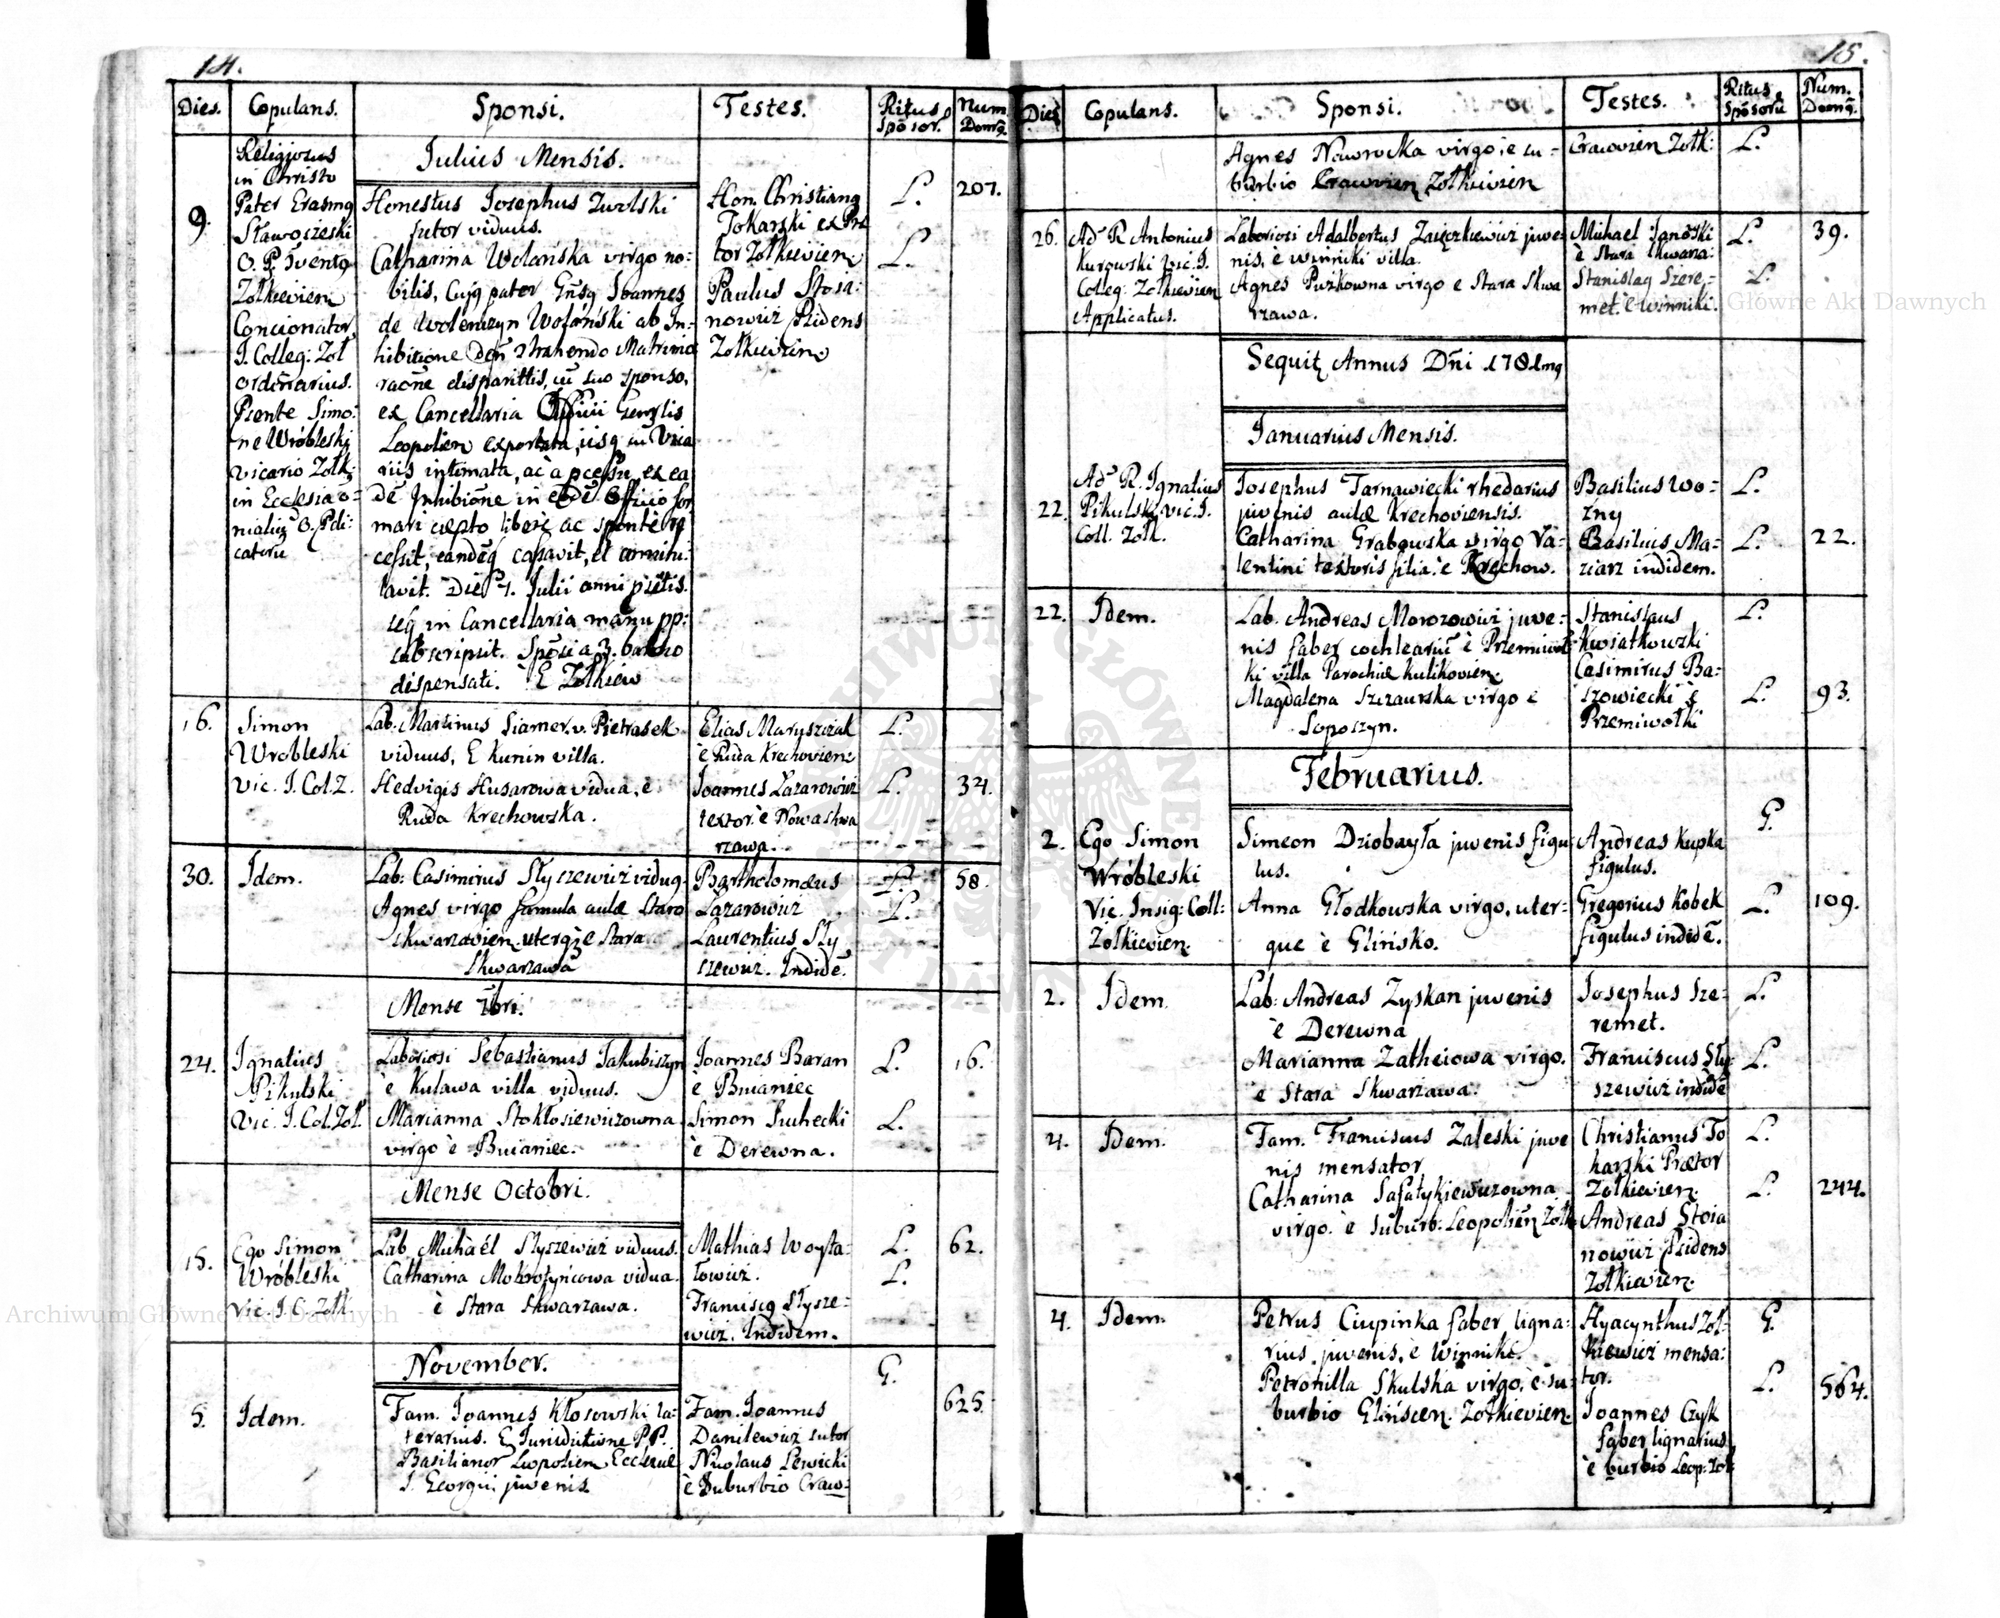 14.
Dies. Copulans. Sponsi. Testes. Ritus Spōsor. Num Domq.
Julius Mensis.
9.
Religiosus
in Christo
Pater Erasmq
Sławoszeski
O. P. Svento
Zołkievien
Concionator
I. Colleg: Zoł
ordinarius.
Pnente Simo:
ne Wróbleski
vicario Zołk:
in Ecclesia o-
Honestus Josephus Zwolski
sutor viduus.
Catharina Wolańska virgo no-
bilis, Cujq pater Gnsq Joannes
de Wolenczyn Wolański ab In-
hibitione
ex Cancellaria Officii Genrlis
Leopolien exportata,
subscripsit. Spōsi a 3. banno
dispensati. E Zołkiew
Hon. Christianq
Tokarski ex Præ
tor Zołkievien
Paulus Stoia:
nowicz Psidens
Zołkievien.
L.
L.
207.
16.
Simon
Wrobleski
Vic. I. Col. Z.
Lab: Martinus Siamer. v. Pietrasek
viduus, E Kunin villa.
Hedvigis Husarowa vidua, e
Ruda Krechowska.
Elias Maryszczak
è Ruda Krechovien:
Joannes Łazarowicz
textor è Nowa Skwa
rzawa.
L.
L.
34.
30.
Idem.
Lab: Casimirus Słyszewicz viduq.
Agnes virgo famula aulæ Staro
Skwarzavien. uterqz e Stara
Skwarzawa
Bartholomæus
Łazarowicz
Laurentius Sły
szewicz. Indidē.
L.
L.
58.
Mense 7bri.
24.
Ignatius
Pikulski
Vic. I. Col. Zoł.
Laboriosi Sebastianus Jakubiszyn
è Kulawa villa viduus.
Marianna Stokłosiewiczowna
virgo è Bucaniec.
Joannes Baran
è Bucaniec
Simon Suchecki
è Derewna.
L.
L.
16.
Mense Octobri.
15.
Ego Simon
Wróbleski
Vic. I. C. Zołk.
Lab. Michaël Słyszewicz viduus.
Catharina Mokrotyńcowa vidua.
è Stara Skwarzawa.
Mathias Woyta:
towicz.
Franciscq Słysze-
wicz. Indidem.
L.
L.
62.
November.
5.
Idem.
Fam. Joannes Kłosowski la-
terarius. E Jurisdictione P.P.
Basilianor Leopolien Ecclesiæ
S. Georgii juvenis.
Fam. Joannes
Danilewicz sutor
Nicolaus Lewicki
è Suburbio Craw-
G.
625.
15.
Dies Copulans. Sponsi. Testes. Ritus Spōsorū Num. Domq.
Agnes Naworoska virgo, è su-
burbio Cracovien Zołkievien
Cracovien Zołk:
L.
26.
Ad R Antonius
Kurowski Vic. I.
Colleg: Zołkievien
Applicatus.
Laboriosi Adalbertus Zaiączkiewicz juve-
nis, è Winniki villa.
Agnes Puzkowna virgo e Stara Skwa
rzawa.
Michael Janoski
è Stara Skwarza:
Stanislaq Szere-
met. è Winniki.
L.
L.
39.
Sequit Annus Dñi 1781mq
Januarius Mensis.
22.
Ad R. Ignatius
Pikulski vic. I.
Coll. Zołk.
Josephus Tarnawiecki rhedarius
juvenis aulæ Krechoviensis.
Catharina Grabowska virgo Va-
lentini textoris filia. è Krechow.
Basilius Wo-
zny
Basilius Ma-
ziarz indidem.
L.
L.
22.
22.
Idem.
Lab. Andreas Morozowicz juve-
nis faber cochleariū è Przemiwół-
ki villa Parochiæ Kulikovien.
Magdalena Szczaurska virgo è
Soposzyn.
Stanislaus
Kwiatkowski
Casimirus Ba-
szowiecki è
Przemiwołki
L.
L.
93.
Februarius.
2.
Ego Simon
Wróbleski
Vic. Insig: Coll:
Zołkievien.
Simeon Dziobayła juvenis figu-
lus.
Anna Głodkowska virgo, uter-
que è Glińsko.
Andreas Kupka
figulus.
Gregorius Kobek
figulus indidē.
G.
L.
109.
2.
Idem
Lab: Andreas Zyskan juvenis
è Derewna
Marianna Zatheiowa virgo.
e Stara Skwarzawa.
Josephus Sze-
remet.
Franciscus Sły-
szewicz indidē
L.
L.
4.
Idem.
Fam. Franciscus Zaleski juve
nis mensator
Catharina Safatykiewiczowna
virgo. è Suburb: Leopolien Zołk
Christianus To
karski Prætor
Zołkievien.
Andreas Stoia
nowicz Psidens
Zołkievien.
L.
L.
244.
4.
Idem.
Petrus Ciupinka faber ligna:
rius juvenis, è Winniki.
Petronilla Skulska virgo, è su-
burbio Glińscen. Zołkievien.
Hyacynthus Zoł-
kiewicz mensa:
tor.
Joannes Czyk
faber lignarius
è burbio Leop: Zoł:
G.
L.
564.
Archiwum Główne Akt Dawnych
Archiwum Główne Akt Dawnych
ARCHIWUM GŁÓWNE AKT DAWNYCH